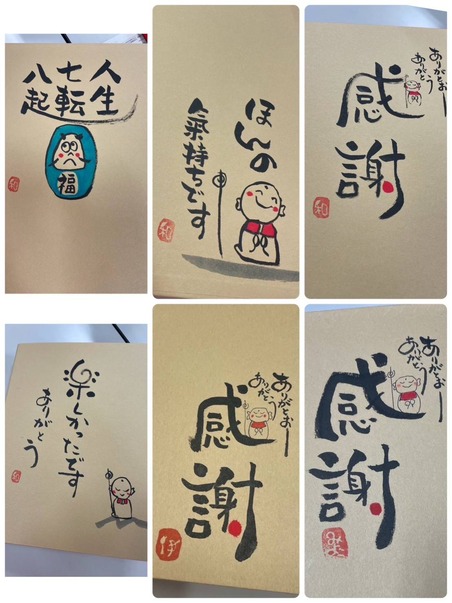 人生
七転
八起
福
和
ほんの
氣持ちです
和
ありがとおー
ありがとう
感謝
和
楽しかったです
ありがとう
ありがとおー
ありがとう
感謝
ありがとおー
ありがとう
感謝